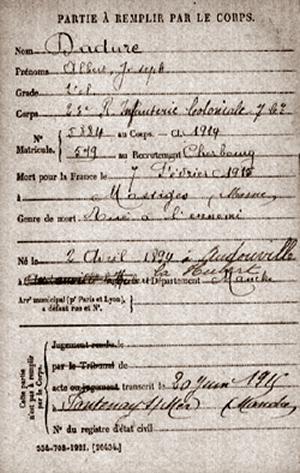 PARTIE À REMPLIR PAR LE CORPS.
Nom Dudure
Prénoms Albert, Joseph
Grade
Corps 23e R. Infanterie Coloniale 7 Cie
Nº Matricule. 5884 au Corps. — Cl 1914
549 au Recrutement Cherbourg
Mort pour la France le 7 Février 1915
à Massiges, Marne
Genre de mort Tué à l'ennemi
Né le 2 Avril 1894 à Audouville
la Hubert
à Département Manche
Arrt municipal (pr Paris et Lyon),
à défaut rue et Nº.
Cette partie n'est pas à remplir par le Corps.
Jugement rendu le
par le Tribunal de
acte ou jugement transcrit le 20 Juin 1915
à Fontenay s/Mer (Manche)
Nº du registre d'état civil
534-708-1921. [26434.]